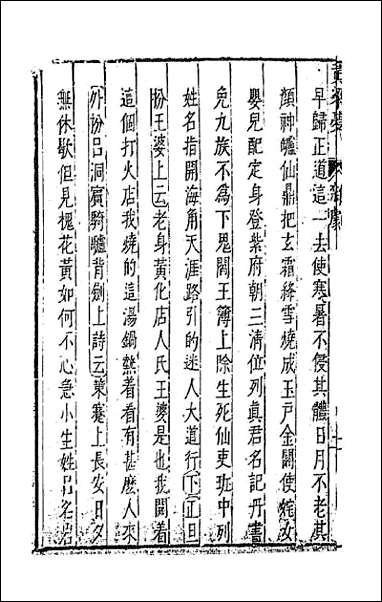 黃粱夢 雜劇
早歸正道這一去使寒暑不侵其體日月不老其
顏神爐仙鼎把玄霜絳雪燒成玉戸金關使姹女
嬰兒配定身登紫府朝三清位列眞君名記丹書
免九族不爲下鬼閻王簿上除生死仙吏班中列
姓名指開海角天涯路引的迷人大道行下正旦
扮王婆上云老身黃化店人氏王婆是也我開着
這個打火店我燒的這湯鍋熱着看有甚麽人來
外扮呂洞賓騎驢背劍上詩云策蹇上長安日夕
無休歇但見槐花黃如何不心急小生姓呂名岩